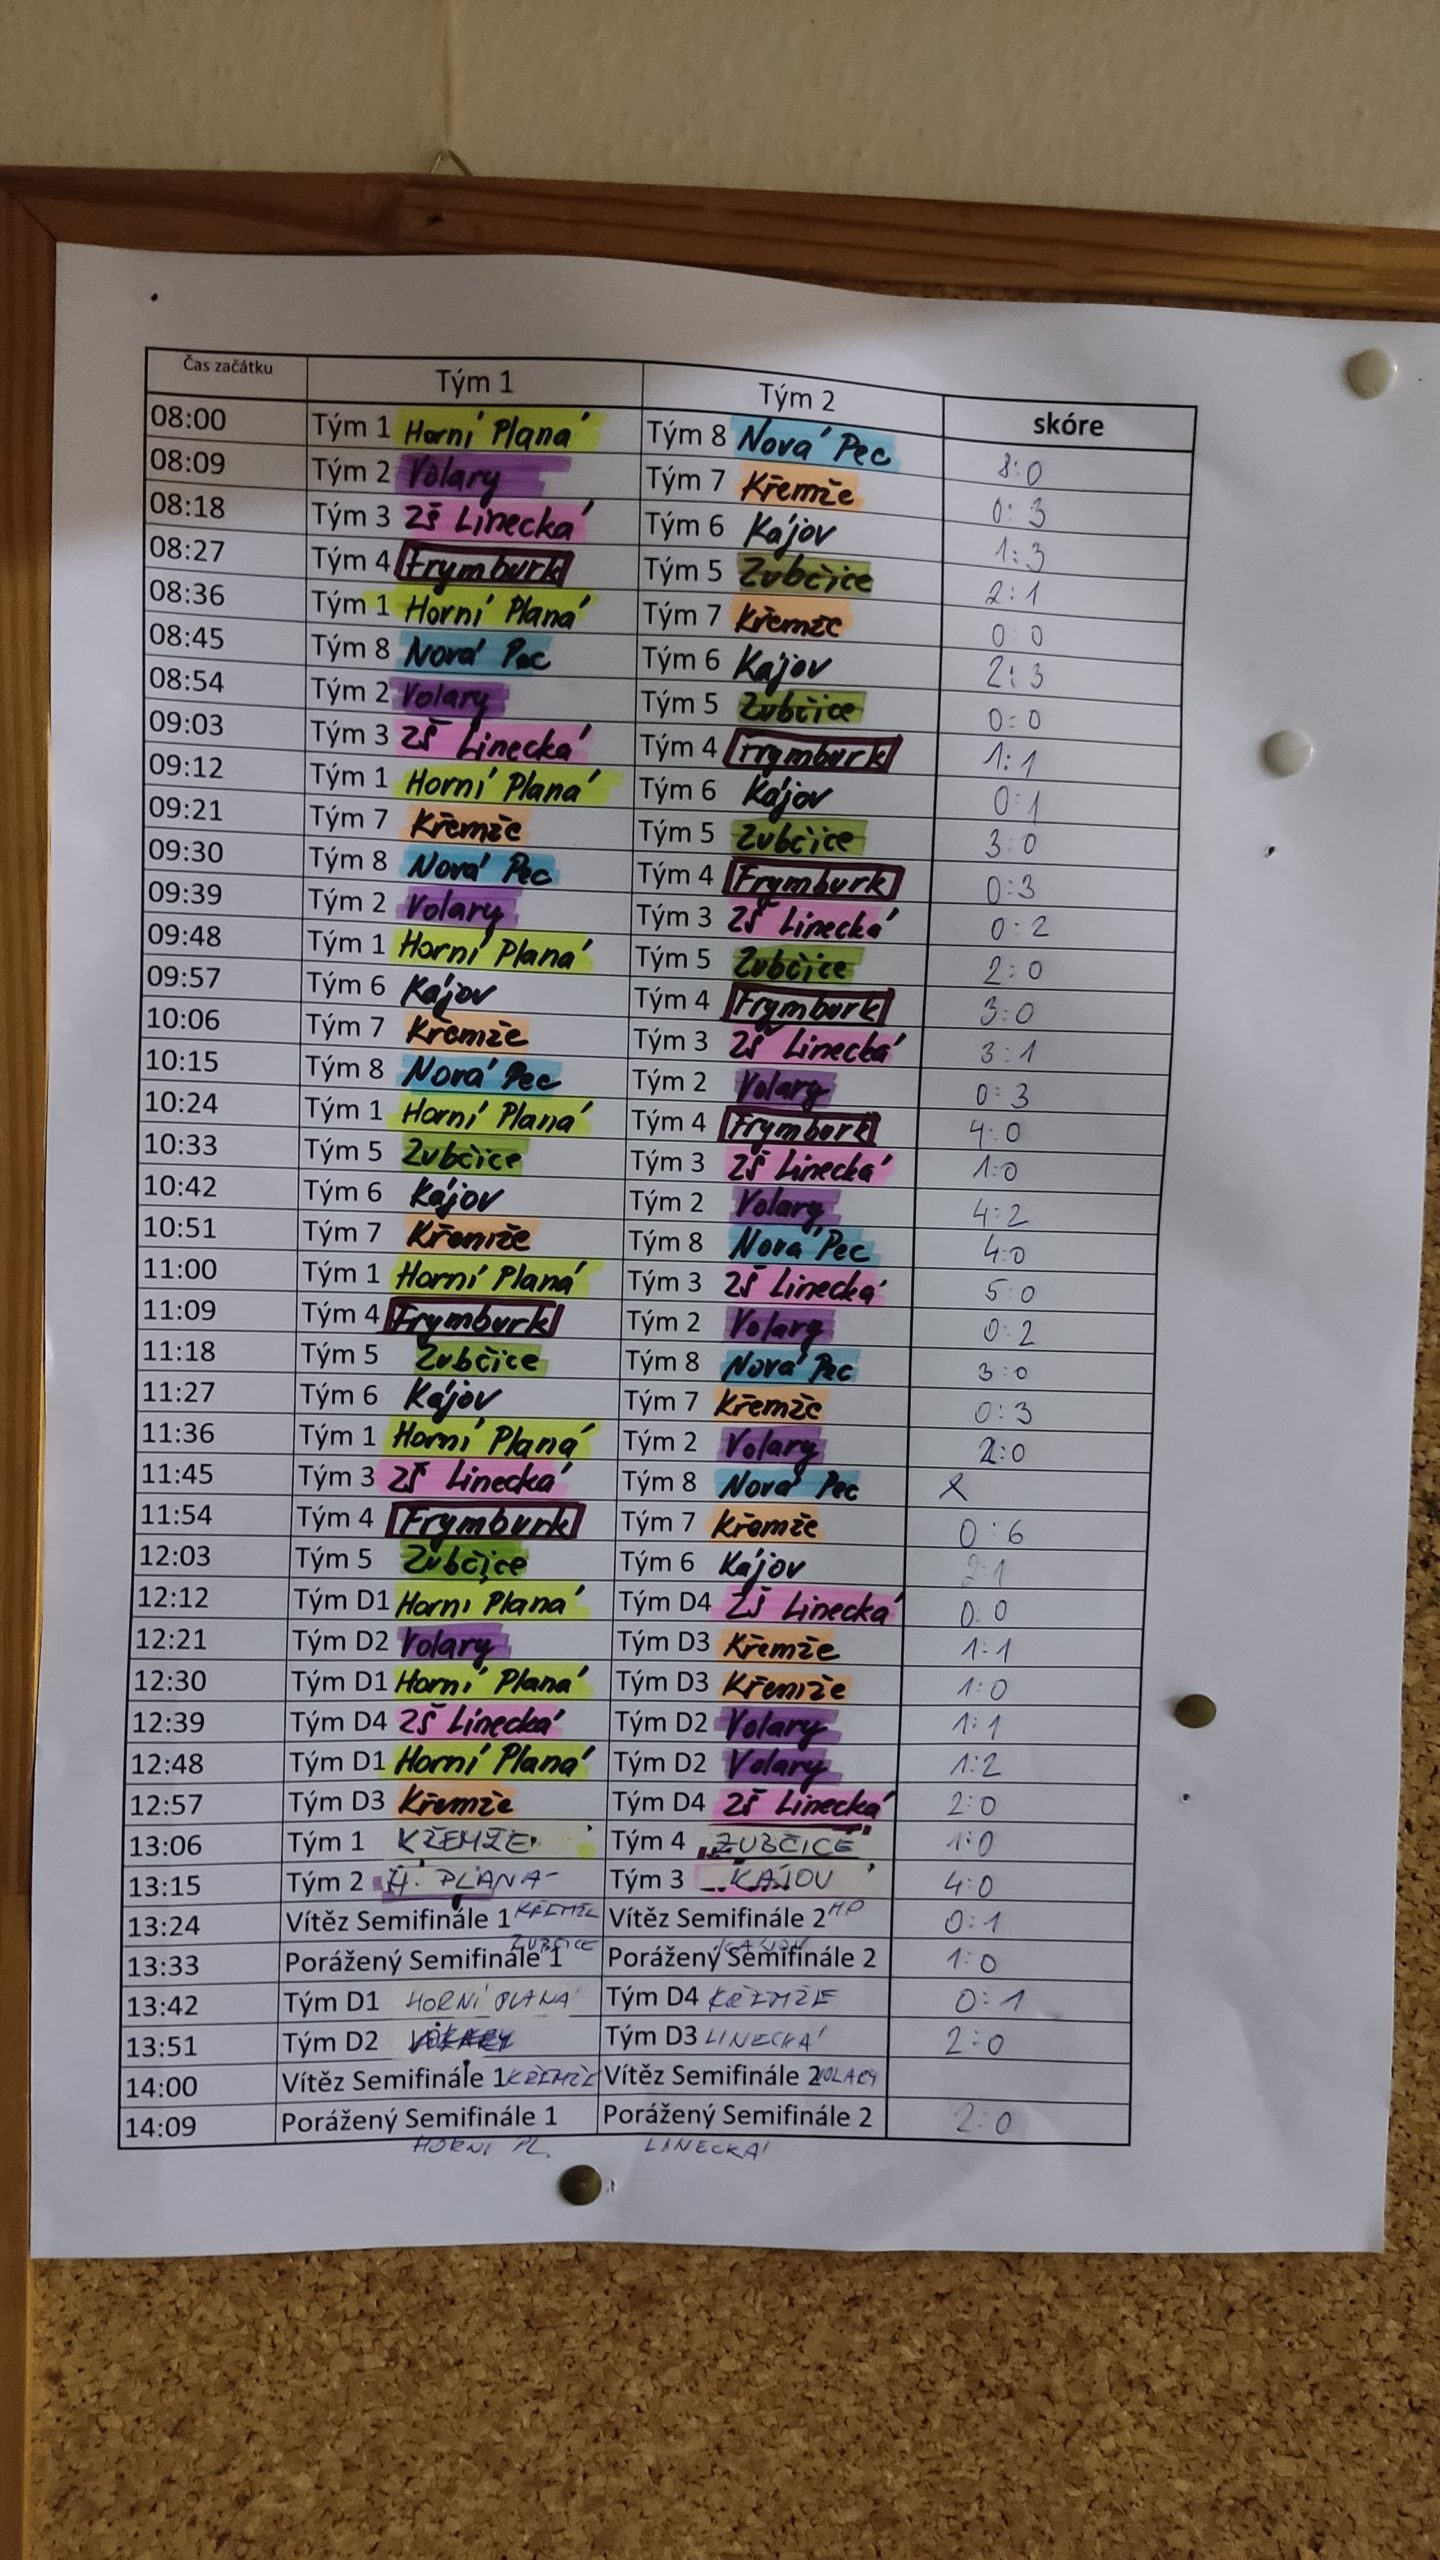 Čas začátku Tým 1 Tým 2 skóre
08:00 Tým 1 Horní Planá Tým 8 Nová Pec 8:0
08:09 Tým 2 Volary Tým 7 Křemže 0:3
08:18 Tým 3 ZŠ Linecká Tým 6 Kájov 1:3
08:27 Tým 4 Frymburk Tým 5 Zubčice 2:1
08:36 Tým 1 Horní Planá Tým 7 Křemže 0:0
08:45 Tým 8 Nová Pec Tým 6 Kájov 2:3
08:54 Tým 2 Volary Tým 5 Zubčice 0:0
09:03 Tým 3 ZŠ Linecká Tým 4 Frymburk 1:1
09:12 Tým 1 Horní Planá Tým 6 Kájov 0:1
09:21 Tým 7 Křemže Tým 5 Zubčice 3:0
09:30 Tým 8 Nová Pec Tým 4 Frymburk 0:3
09:39 Tým 2 Volary Tým 3 ZŠ Linecká 0:2
09:48 Tým 1 Horní Planá Tým 5 Zubčice 2:0
09:57 Tým 6 Kájov Tým 4 Frymburk 3:0
10:06 Tým 7 Křemže Tým 3 ZŠ Linecká 3:1
10:15 Tým 8 Nová Pec Tým 2 Volary 0:3
10:24 Tým 1 Horní Planá Tým 4 Frymburk 4:0
10:33 Tým 5 Zubčice Tým 3 ZŠ Linecká 1:0
10:42 Tým 6 Kájov Tým 2 Volary 4:2
10:51 Tým 7 Křemže Tým 8 Nová Pec 4:0
11:00 Tým 1 Horní Planá Tým 3 ZŠ Linecká 5:0
11:09 Tým 4 Frymburk Tým 2 Volary 0:2
11:18 Tým 5 Zubčice Tým 8 Nová Pec 3:0
11:27 Tým 6 Kájov Tým 7 Křemže 0:3
11:36 Tým 1 Horní Planá Tým 2 Volary 2:0
11:45 Tým 3 ZŠ Linecká Tým 8 Nová Pec
11:54 Tým 4 Frymburk Tým 7 Křemže 0:6
12:03 Tým 5 Zubčice Tým 6 Kájov 2:1
12:12 Tým D1 Horní Planá Tým D4 ZŠ Linecká 0:0
12:21 Tým D2 Volary Tým D3 Křemže 1:1
12:30 Tým D1 Horní Planá Tým D3 Křemže 1:0
12:39 Tým D4 ZŠ Linecká Tým D2 Volary 1:1
12:48 Tým D1 Horní Planá Tým D2 Volary 1:2
12:57 Tým D3 Křemže Tým D4 ZŠ Linecká 2:0
13:06 Tým 1 KŘEMŽE Tým 4 ZUBČICE 1:0
13:15 Tým 2 H. PLANÁ Tým 3 KÁJOV 4:0
13:24 Vítěz Semifinále 1 KŘEMŽE Vítěz Semifinále 2 HP 0:1
13:33 Porážený Semifinále 1 ZUBČICE Porážený Semifinále 2 KÁJOV 1:0
13:42 Tým D1 HORNÍ PLANÁ Tým D4 KŘEMŽE 0:1
13:51 Tým D2 Tým D3 LINECKÁ 2:0
14:00 Vítěz Semifinále 1 KŘEMŽE Vítěz Semifinále 2 VOLARY
14:09 Porážený Semifinále 1 Porážený Semifinále 2 2:0
HORNÍ PL. LINECKÁ